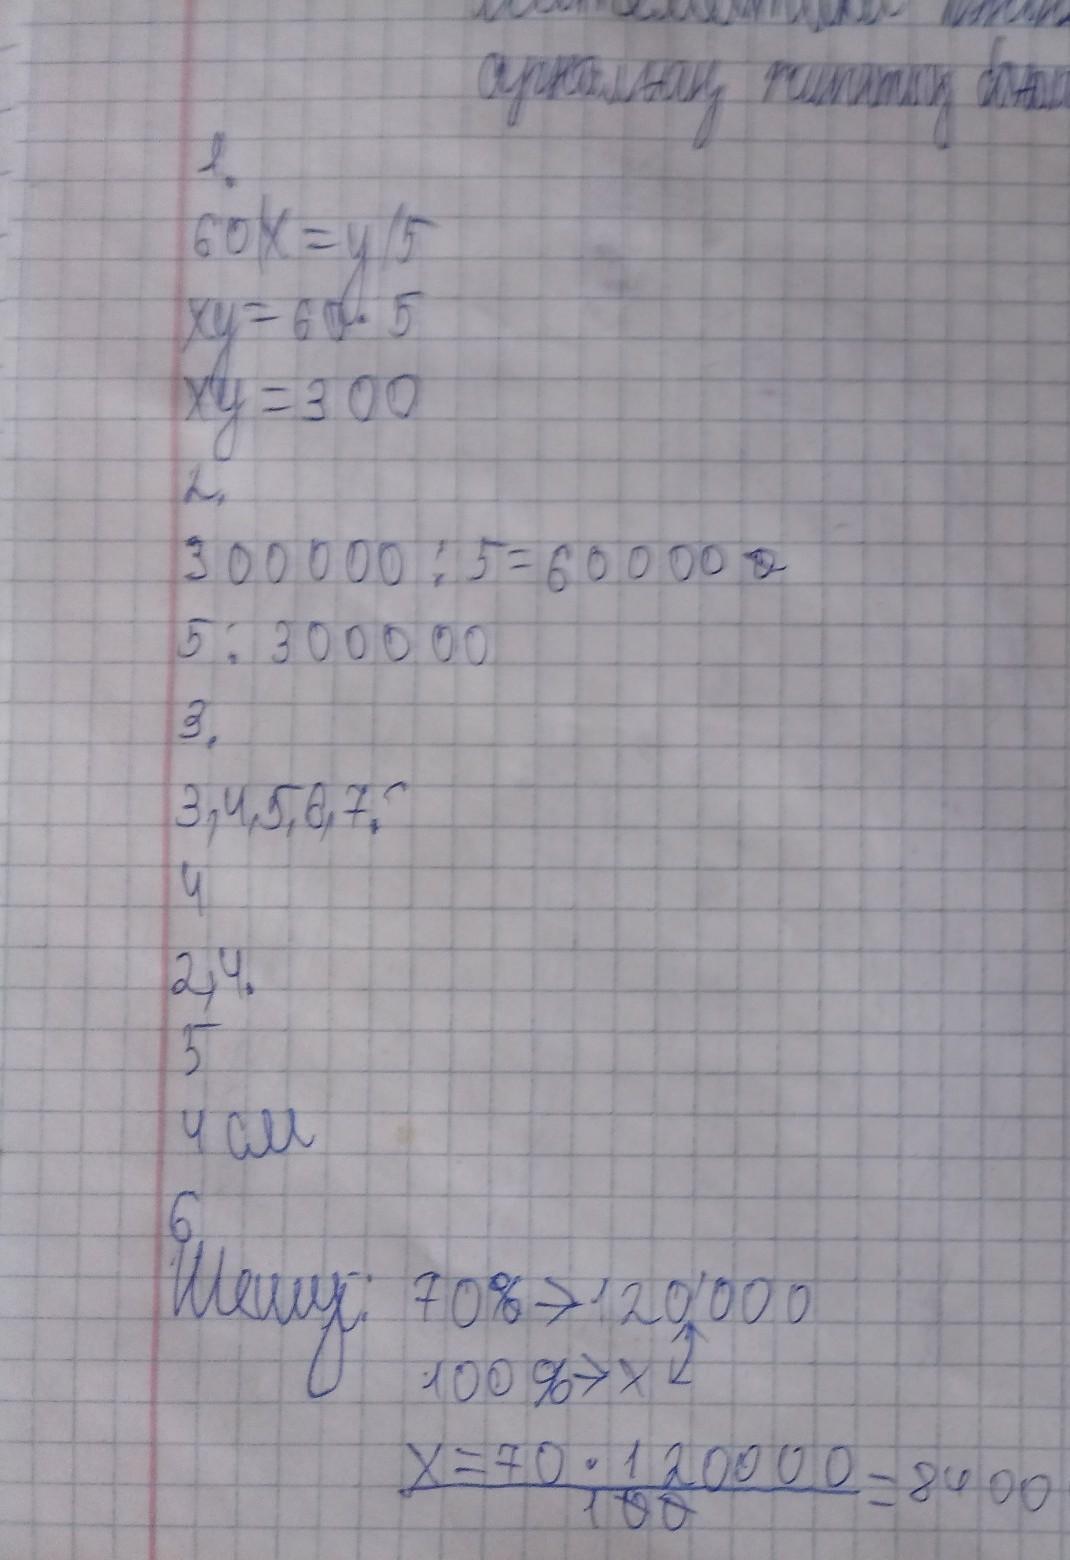 арналған жиынтық
1.
60/x=y/5
xy=60·5
xy=300
2.
300000:5=60000
5:300000
3.
3,4,5,6,7.
4
2,4.
5
4 см
6
Шешуі: 70%→120000
100%→x
x=70·120000/100=8400